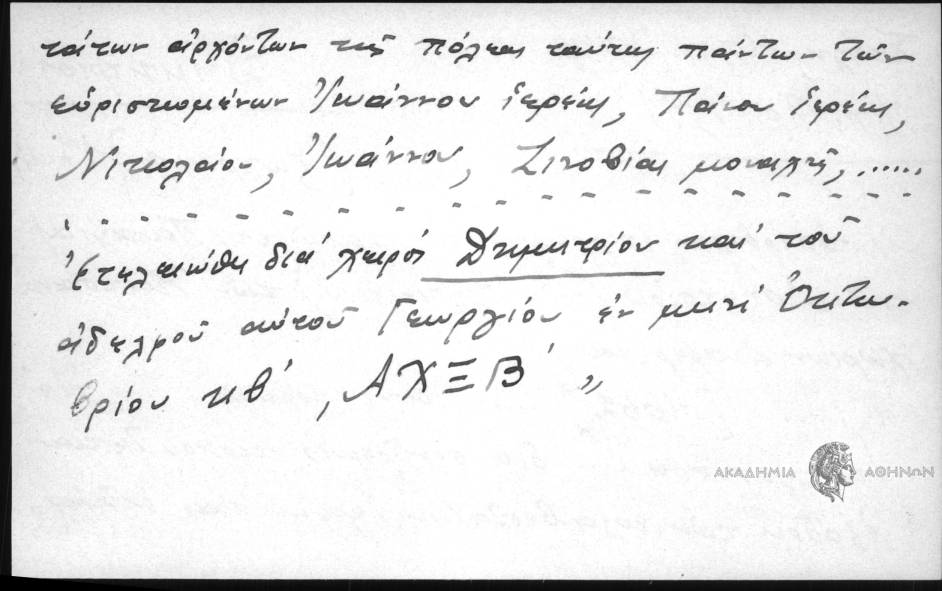 τάτων ἀρχόντων τῆς πόλεως ταύτης πάντων τῶν
εὑρισκομένων Ἰωάννου ἱερέως, Πάνου ἱερέως,
Νικολάου, Ἰωάννου, Ζινοβίας μοναχῆς, ......
Ἐτελειώθη διά χειρός Δημητρίου καί τοῦ
ἀδελφοῦ αὐτοῦ Γεωργίου ἐν μηνί Ὀκτω-
βρίου κβ΄, ͵ΑΧΞΒ΄ „
ΑΚΑΔΗΜΙΑ ΑΘΗΝΩΝ